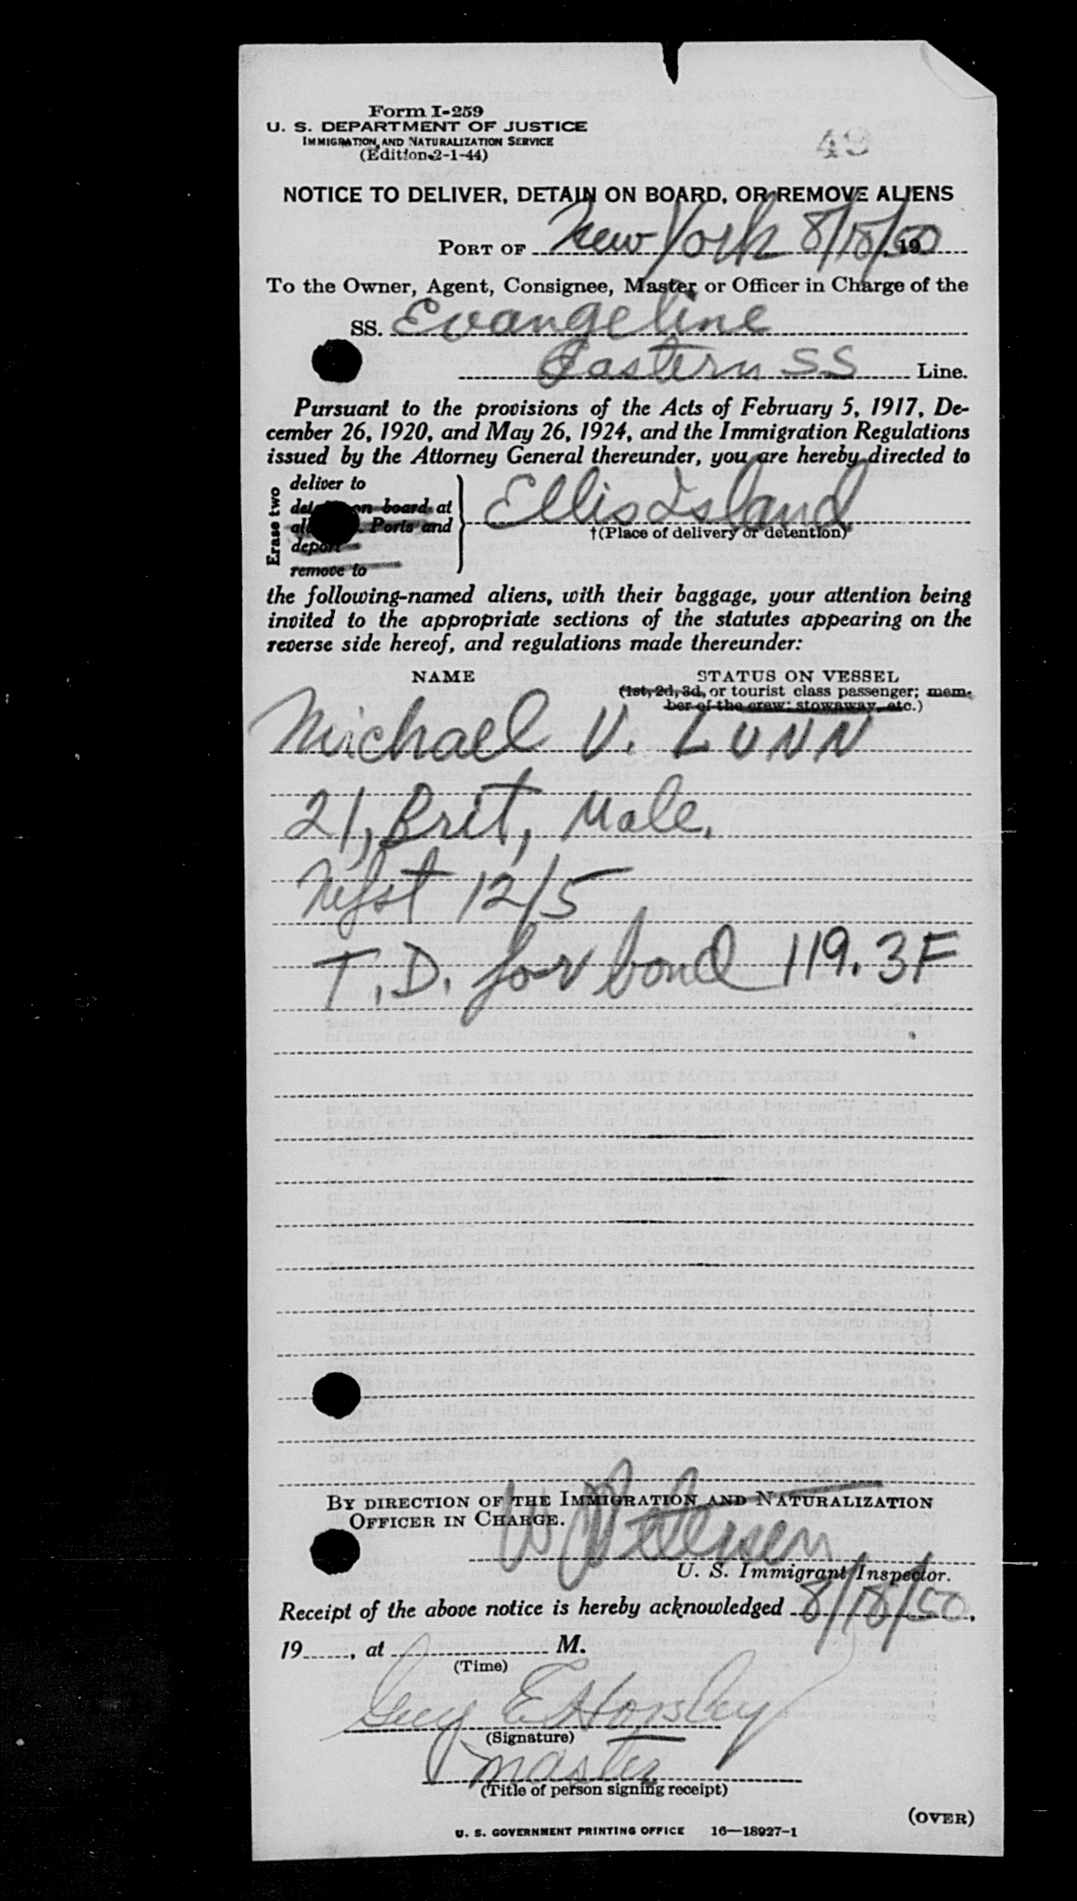 Form I-259
U. S. DEPARTMENT OF JUSTICE
IMMIGRATION AND NATURALIZATION SERVICE
(Edition 2-1-44)
49
NOTICE TO DELIVER, DETAIN ON BOARD, OR REMOVE ALIENS
PORT OF New York 8/18/50, 19
To the Owner, Agent, Consignee, Master or Officer in Charge of the
SS. Evangeline
Eastern SS Line.
Pursuant to the provisions of the Acts of February 5, 1917, De-
cember 26, 1920, and May 26, 1924, and the Immigration Regulations
issued by the Attorney General thereunder, you are hereby directed to
Erase two
deliver to
on board at
Ports and
deport
remove to
Ellis Island
†(Place of delivery or detention)
the following-named aliens, with their baggage, your attention being
invited to the appropriate sections of the statutes appearing on the
reverse side hereof, and regulations made thereunder:
NAME STATUS ON VESSEL
(1st, 2d, 3d, or tourist class passenger; mem-
ber of the crew; stowaway, etc.)
Michael V. LUNN
21, Brit, Male.
12/5
T.D. for bond 119.3F
BY DIRECTION OF THE IMMIGRATION AND NATURALIZATION
OFFICER IN CHARGE.
W Petersen
U. S. Immigrant Inspector.
Receipt of the above notice is hereby acknowledged 8/18/50,
19, at M.
(Time)
Guy E Horsley
(Signature)
master
(Title of person signing receipt)
(OVER)
U. S. GOVERNMENT PRINTING OFFICE 16—18927-1